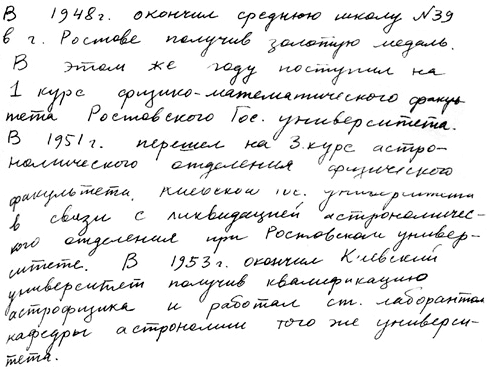 В 1948г. окончил среднюю школу №39
в г. Ростове получив золотую медаль.
В этом же году поступил на
1 курс физико-математического факуль
тета Ростовского Гос. университета.
В 1951г. перешел на 3 курс астро-
номического отделения физического
факультета. Киевской гос. университета
в связи с ликвидацией астрономичес-
кого отделения при Ростовском универ-
ситете. В 1953г. окончил Киевский
университет получив квалификацию
астрофизика и работал ст. лаборантом
кафедры астрономии того же универси-
тета.